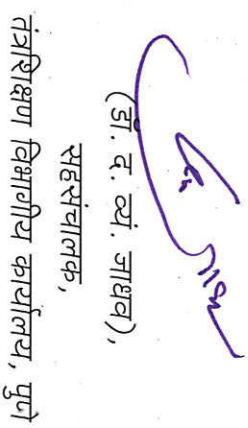 (डॉ. द. व्यं. जाधव),
सहसंचालक,
तंत्रशिक्षण विभागीय कार्यालय, पुणे